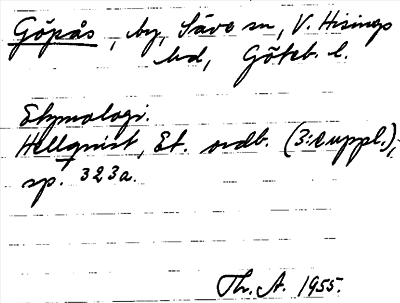 Göpås, by, Säve sn, V. Hisings
hd, Göteb. l.
Etymologi.
Hellquist, Et. ordb. (3:e uppl.),
sp. 323a.
Th. A. 1955.